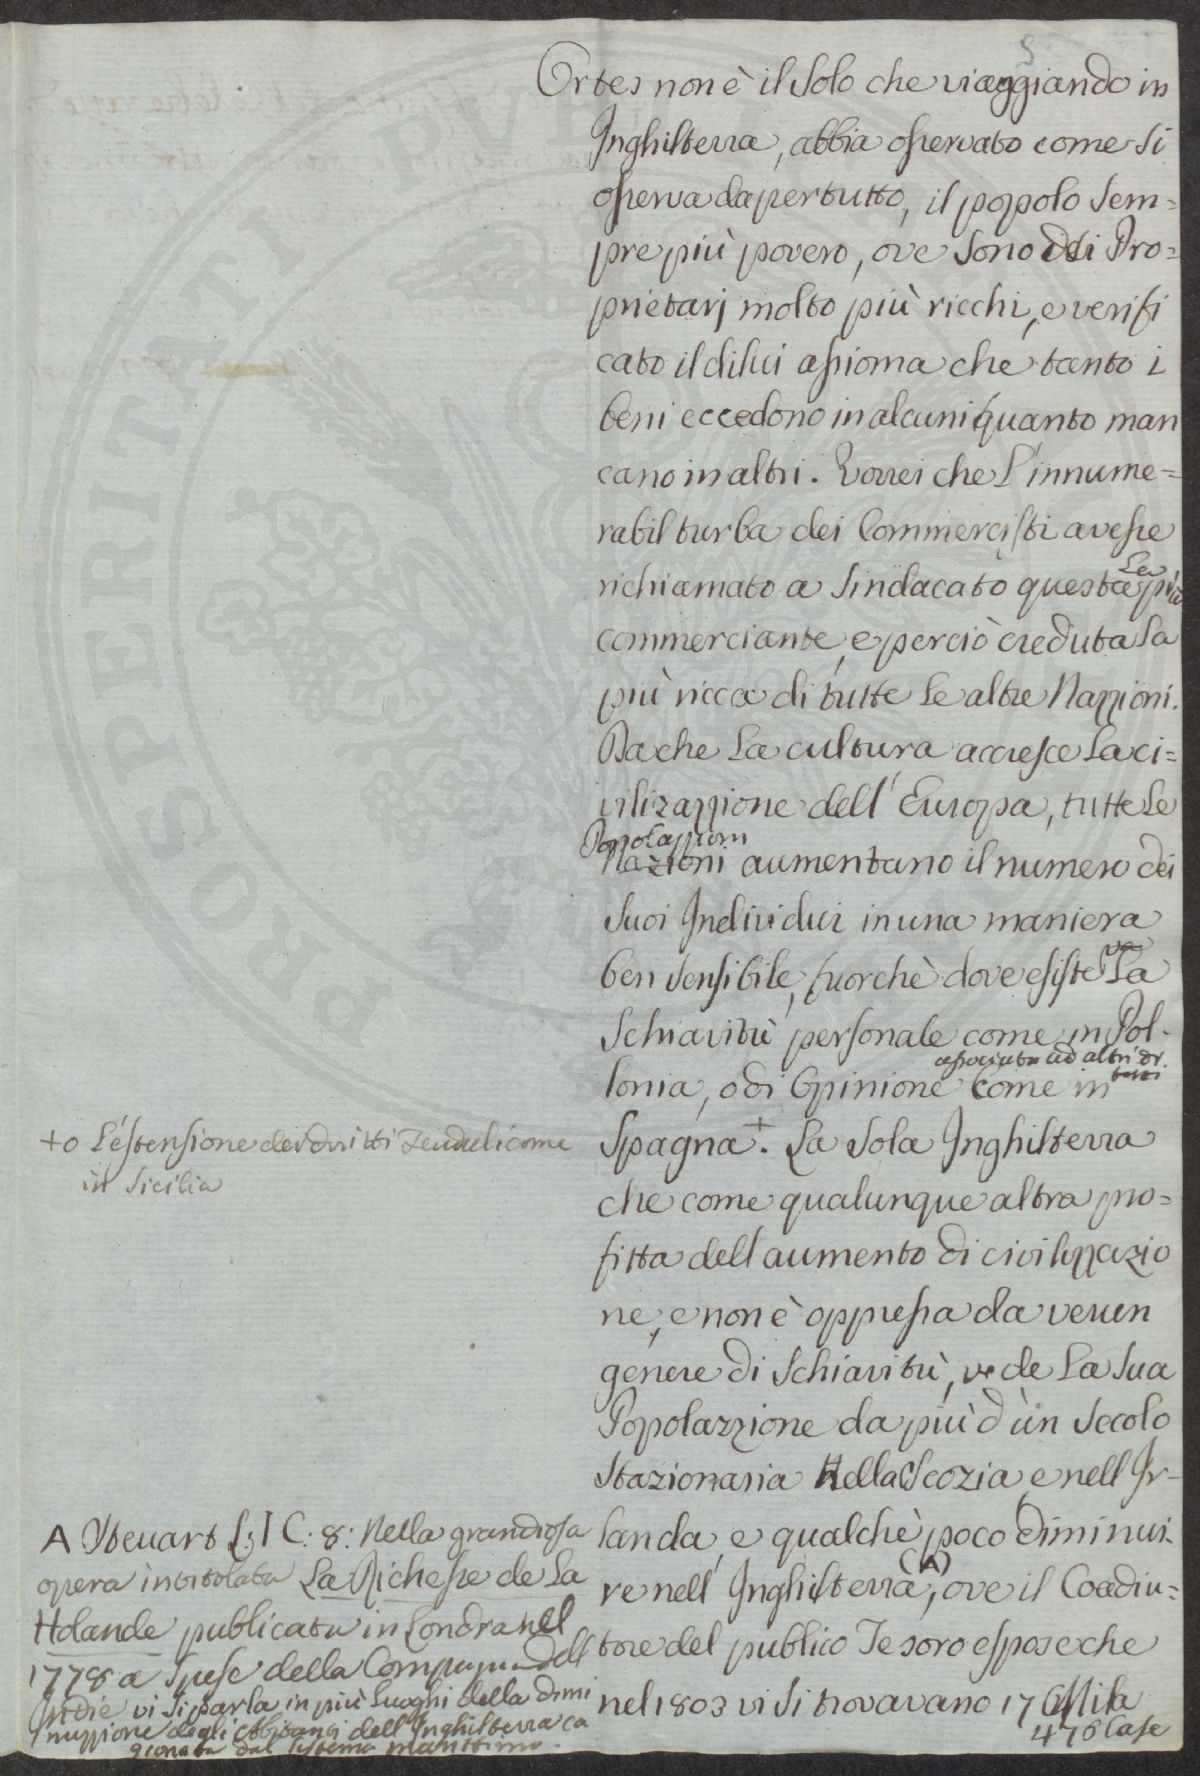 5
Ortes non è il solo che viaggiando in
Inghilterra, abbia osservato come si
osserva dapertutto, il popolo sem=
pre più povero, ove sono dei Pro=
prietarj molto più ricchi, e verifi
cato il dilui assioma che tanto i
beni eccedono in alcuni quanto man
cano in altri. Vorrei che l'innume=
rabil turba dei Commercisti avesse
richiamato a sindacato questa la più
commerciante, e perciò creduta la
più ricca di tutte le altre Nazzioni.
Da che la cultura accresce la ci=
vilizazzione dell'Europa, tutte le
Popolazzioni
Nazioni aumentano il numero dei
suoi Individui in una maniera
ben sensibile, fuorchè dove esiste va la
Schiavitù personale come in Pol-
associata ad altri dr.
lonia, o di Opinione come in
Spagna +. La sola Inghilterra
che come qualunque altra pro=
fitta dell aumento di civilizzazio
ne, e non è oppressa da verun
genere di Schiavitù, vede la sua
Popolazzione da più d'un secolo
stazionaria Nella Scozia, e nell Ir-
landa, e qualche poco diminui-
re nell' Inghilterra (A), ove il Coadiu=
tore del publico Tesoro espose che
nel 1803 vi si trovavano 176 Mila
476 Case
+ o l'estensione dei dritti Feudali come
in Sicilia
A Steuart L. I C. 8: Nella grandiosa
opera intitolata La Richesse de La
Holande publicata in Londra nel
1778 a spese della Compagnia dell
Indie vi si parla in più luoghi della dimi
nuzzione degli Abitanti dell'Inghilterra ca
gionata dal sistema maritimo.
PROSPERITATI PVBL